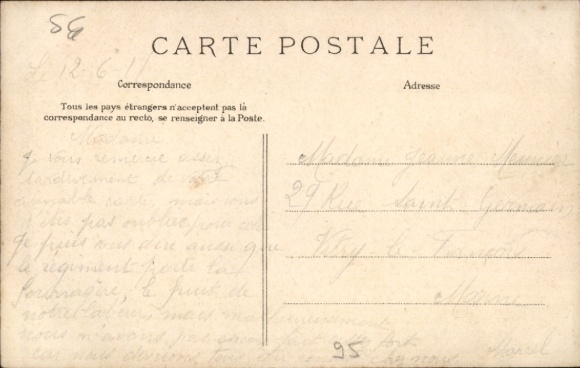 56
CARTE POSTALE
Le 12-6-1
Correspondance
Adresse
Tous les pays étrangers n'acceptent pas là
correspondance au recto, se renseigner à la Poste.
Madame
Je vous remercie assez
tardivement de votre
aimable carte, mais vous
n'êtes pas oubliée pour cela
Je puis vous dire aussi que
le régiment porte la
fourragère, le fruit de
notre labeur mais malheureusement
nous n'avons pas
car nous devrions tous
Madame Jeanne
29 Rue Saint Germain
Vitry le François
Marne
95
Marcel